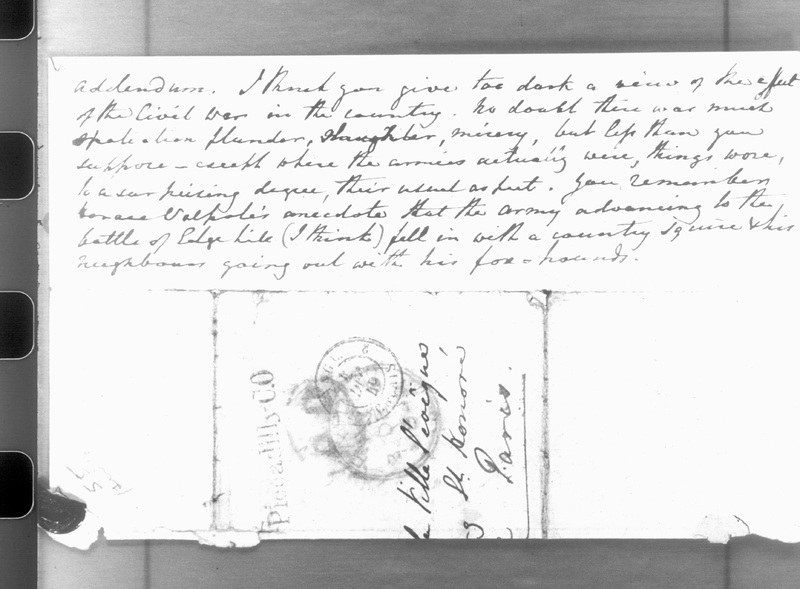 addendum. I think you give too dark a view of the effect
of the Civil War in the country. No doubt there was much
spoliation plunder, slaughter, misery, but less than you
suppose – except where the armies actually were, things wore,
to a surprising degree, their usual aspect. You remember
Horace Walpole's anecdote that the army advancing to the
battle of Edge hill (I think) fell in with a country Squire & his
neighbours going out with his fox-hounds.
Piccadilly C.O
Ville l'evêque
St. Honoré
Paris.